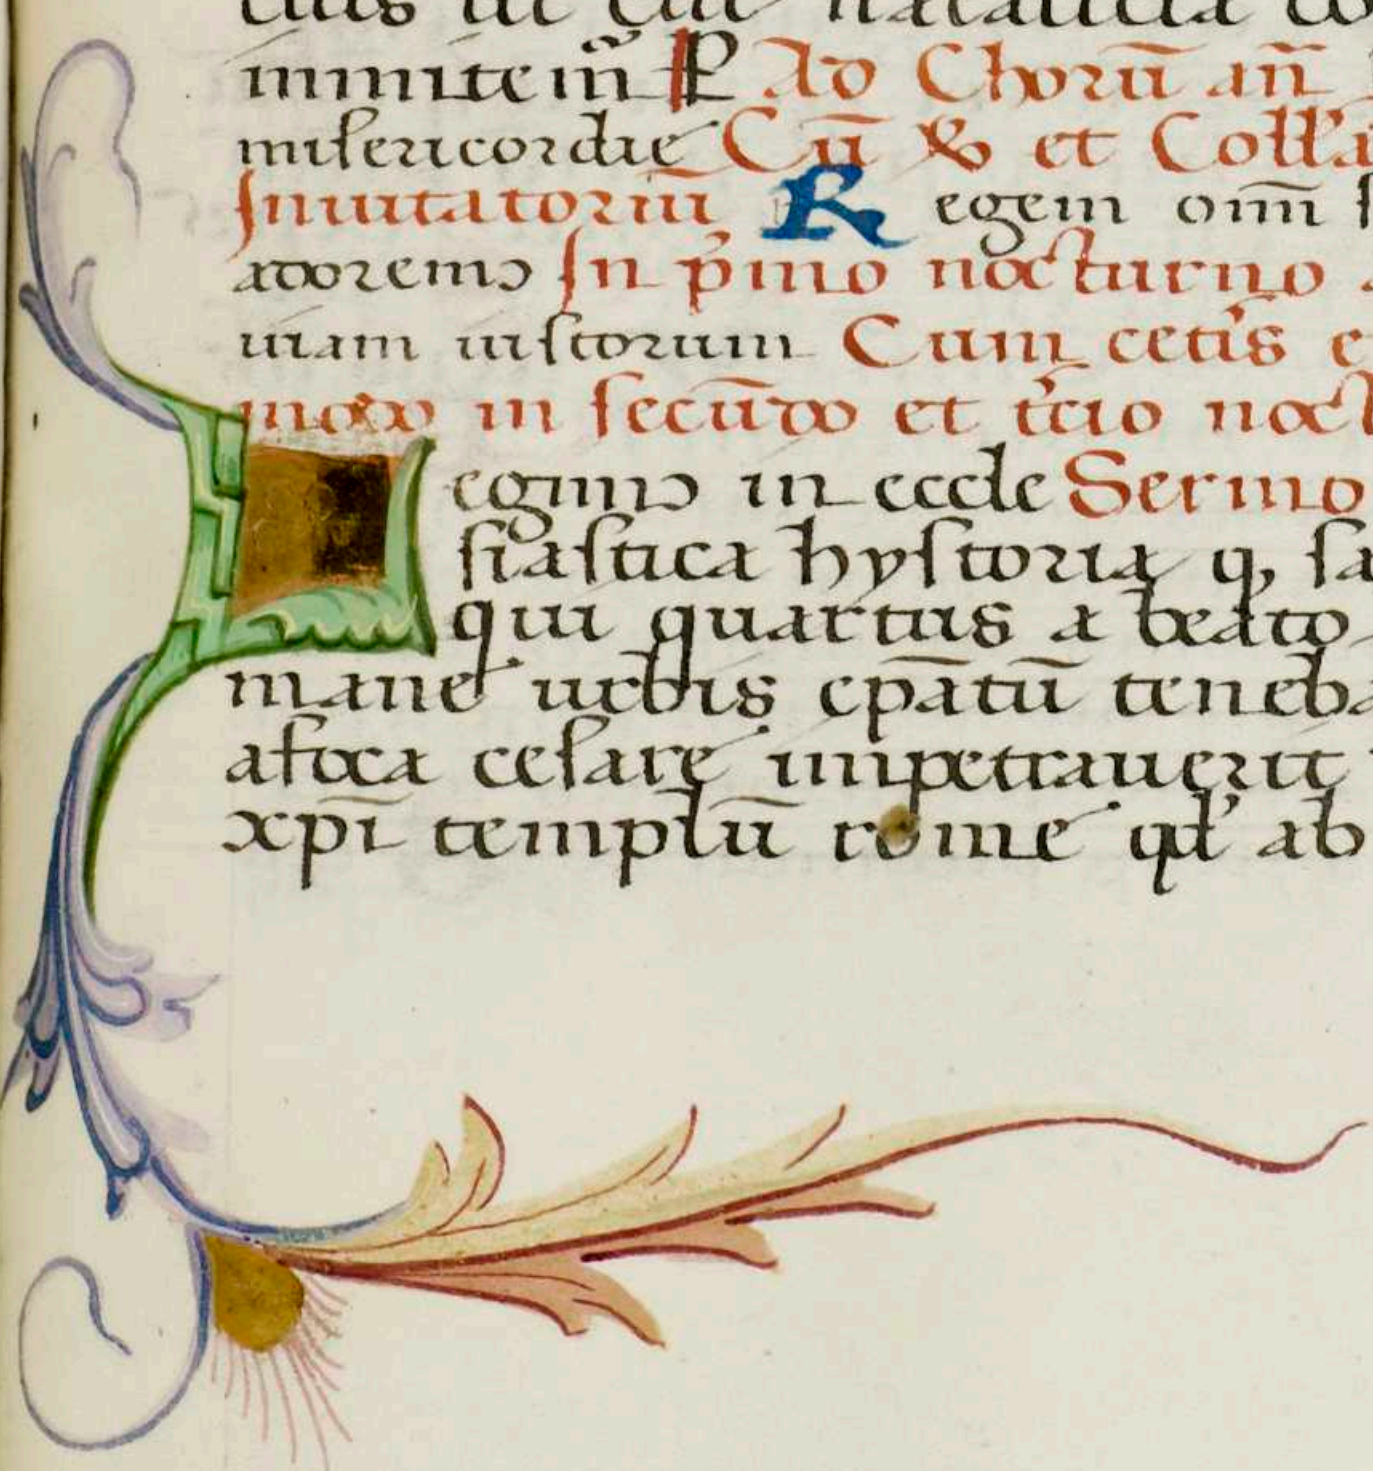 mitem m̄ ℟ Ad Chorū an̄
misericordie Cū ℣ et Coll'a
Inuitatoriū R egem om̄ s
adoremꝰ In p̄mo nocturno
uiam iustorum Cum cetis e
modo in secūdo et t'cio noct
L egimꝰ in eccle Sermo
siastica hystoria q, sa
qui quartus a beato
mane urbis ep̄atū teneba
afoca cesare impetrauerit
xp̄i templū rome qd' ab